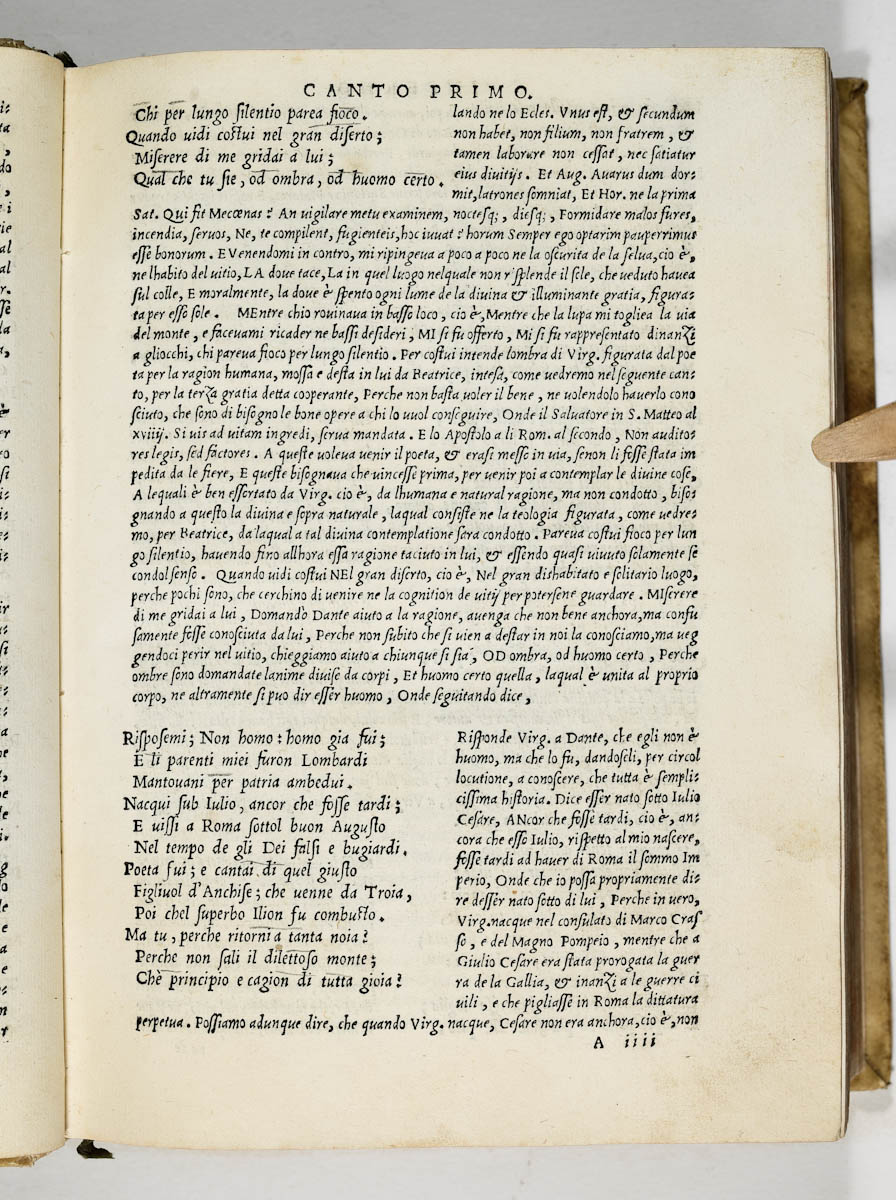 CANTO PRIMO.
Chi per lungo silentio parea fioco.
Quando uidi costui nel gran diserto;
Miserere di me gridai a lui;
Qual che tu sie, od ombra, od huomo certo.
lando ne lo Ecles. Vnus est, & secundum
non habet, non filium, non fratrem, &
tamen laborare non cessat, nec satiatur
eius diuitijs. Et Aug. Auarus dum dor-
mit, latrones somniat, Et Hor. ne la prima
Sat. Qui fit Mecœnas? An uigilare metu exanimem, noctesq;, diesq;, Formidare malos fures,
incendia, seruos, Ne, te compilent, fugienteis, hoc iuuat? horum Semper ego optarim pauperrimus
esse bonorum. E Venendomi in contro, mi ripingeua a poco a poco ne la oscurita de la selua, cio è,
ne lhabito del uitio, LA doue tace, La in quel luogo nelquale non risplende il sole, che ueduto hauea
sul colle, E moralmente, la doue è spento ogni lume de la diuina & illuminante gratia, figura-
ta per esso sole. MEntre chio rouinaua in basso loco, cio è, Mentre che la lupa mi togliea la uia
del monte, e faceuami ricader ne bassi desideri, MI si fu offerto, Mi si fu rappresentato dinanzi
a gliocchi, chi pareua fioco per lungo silentio. Per costui intende lombra di Virg. figurata dal poe
ta per la ragion humana, mossa e desta in lui da Beatrice, intesa, come uedremo nel seguente can-
to, per la terza gratia detta cooperante, Perche non basta uoler il bene, ne uolendolo hauerlo cono
sciuto, che sono di bisogno le bone opere a chi lo uuol conseguire, Onde il Saluatore in S. Matteo al
xviiij. Si uis ad uitam ingredi, serua mandata. E lo Apostolo a li Rom. al secondo, Non audito-
res legis, sed factores. A queste uoleua uenir il poeta, & erasi messo in uia, se non li fosse stata im
pedita da le fiere, E queste bisognaua che uincesse prima, per uenir poi a contemplar le diuine cose,
A lequali è ben essortato da Virg. cio è, da lhumana e natural ragione, ma non condotto, biso-
gnando a questo la diuina e sopra naturale, laqual consiste ne la teologia figurata, come uedre-
mo, per Beatrice, da laqual a tal diuina contemplatione sara condotto. Pareua costui fioco per lun
go silentio, hauendo fino allhora essa ragione taciuto in lui, & essendo quasi uiuuto solamente se
condo lsenso. Quando uidi costui NEl gran diserto, cio è, Nel gran dishabitato e solitario luogo,
perche pochi sono, che cerchino di uenire ne la cognition de uitij per potersene guardare. MIserere
di me gridai a lui, Domandò Dante aiuto a la ragione, auenga che non bene anchora, ma confu
samente fosse conosciuta da lui, Perche non subito che si uien a destar in noi la conosciamo, ma ueg
gendoci perir nel uitio, chieggiamo aiuto a chiunque si sia, OD ombra, od huomo certo, Perche
ombre sono domandate lanime diuise da corpi, Et huomo certo quella, laqual è unita al proprio
corpo, ne altramente si puo dir esser huomo, Onde seguitando dice,
Risposemi; Non homo: homo gia fui;
E li parenti miei furon Lombardi
Mantouani per patria ambedui.
Nacqui sub Iulio, ancor che fosse tardi;
E uissi a Roma sottol buon Augusto
Nel tempo de gli Dei falsi e bugiardi.
Poeta fui; e cantai di quel giusto
Figliuol d'Anchise; che uenne da Troia,
Poi chel superbo Ilion fu combusto.
Ma tu, perche ritorni a tanta noia?
Perche non sali il dilettoso monte;
Chè principio e cagion di tutta gioia?
Risponde Virg. a Dante, che egli non è
huomo, ma che lo fu, dandoseli, per circol
locutione, a conoscere, che tutta è sempli-
cissima historia. Dice esser nato sotto Iulio
Cesare, ANcor che fosse tardi, cio è, an-
cora che esso Iulio, rispetto al mio nascere,
fosse tardi ad hauer di Roma il sommo Im
perio, Onde che io possa propriamente di-
re desser nato sotto di lui, Perche in uero,
Virg. nacque nel consulato di Marco Cras
so, e del Magno Pompeio, mentre che a
Giulio Cesare era stata prorogata la guer
ra de la Gallia, & inanzi a le guerre ci
uili, e che pigliasse in Roma la dittatura
perpetua. Possiamo adunque dire, che quando Virg. nacque, Cesare non era anchora, cio è, non
A iiii